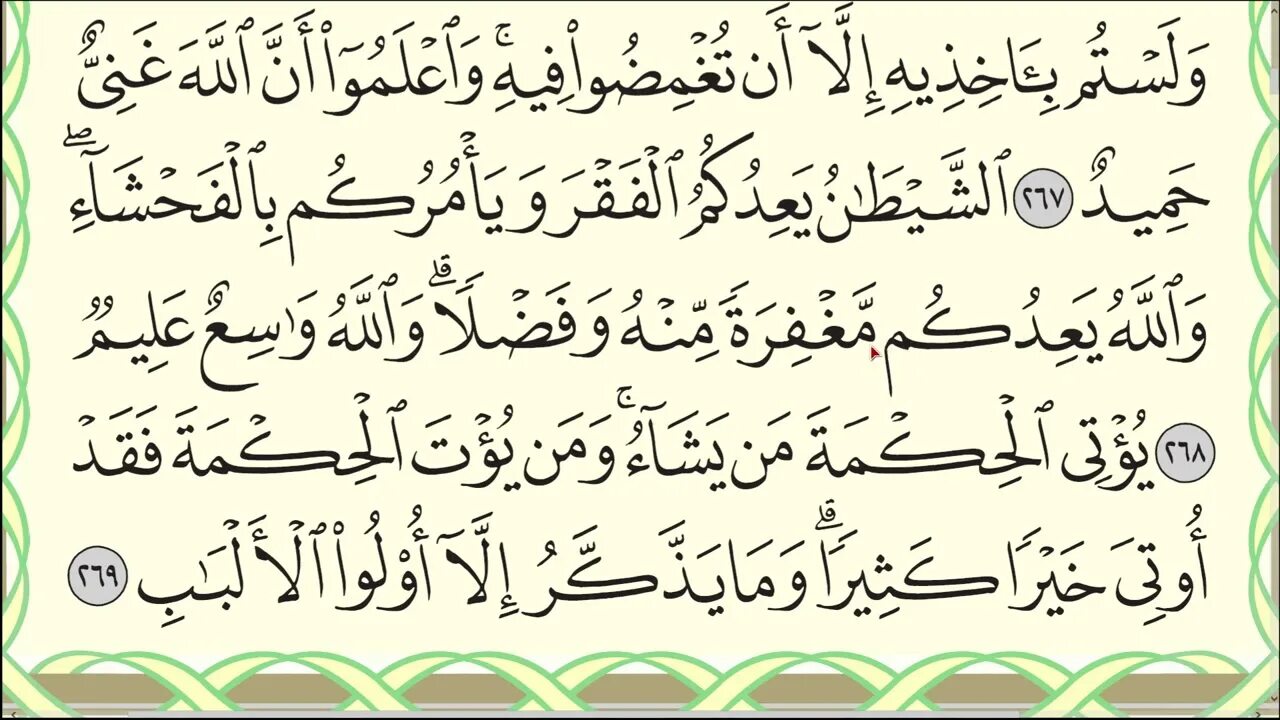 وَلَسْتُم بِـَٔاخِذِيهِ إِلَّآ أَن تُغْمِضُوا۟ فِيهِ ۚ وَٱعْلَمُوٓا۟ أَنَّ ٱللَّهَ غَنِىٌّ
حَمِيدٌ ٢٦٧ ٱلشَّيْطَـٰنُ يَعِدُكُمُ ٱلْفَقْرَ وَيَأْمُرُكُم بِٱلْفَحْشَآءِ ۖ
وَٱللَّهُ يَعِدُكُم مَّغْفِرَةً مِّنْهُ وَفَضْلًا ۗ وَٱللَّهُ وَٰسِعٌ عَلِيمٌ
٢٦٨ يُؤْتِى ٱلْحِكْمَةَ مَن يَشَآءُ ۚ وَمَن يُؤْتَ ٱلْحِكْمَةَ فَقَدْ
أُوتِىَ خَيْرًا كَثِيرًا ۗ وَمَا يَذَّكَّرُ إِلَّآ أُو۟لُوا۟ ٱلْأَلْبَـٰبِ ٢٦٩